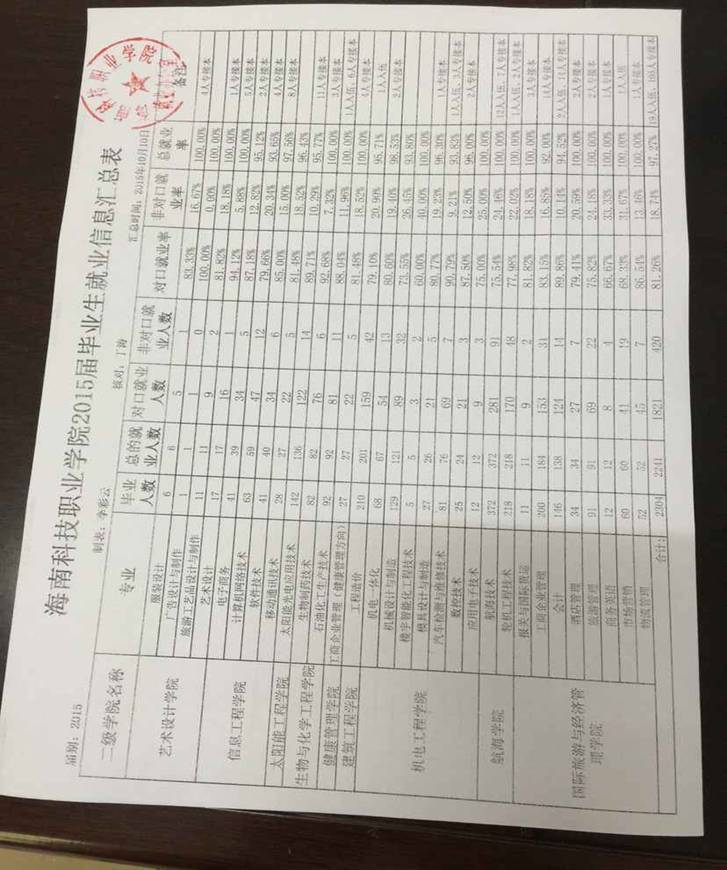 海南科技职业学院2015届毕业生就业信息汇总表
届别：2015 制表：李彩云 核对：丁涛 汇总时间：2015年10月10日
二级学院名称 专业 毕业人数 总的就业人数 对口就业人数 非对口就业人数 对口就业率 非对口就业率 总就业率 备注
艺术设计学院 服装设计 6 6 5 1 83.33% 16.67% 100.00% 4人专接本
广告设计与制作 1 1 1 0 100.00% 0.00% 100.00%
旅游工艺品设计与制作 11 11 9 2 81.82% 18.18% 100.00% 1人专接本
艺术设计 17 17 16 1 94.12% 5.88% 100.00% 5人专接本
信息工程学院 电子商务 41 39 34 5 87.18% 12.82% 95.12% 2人专接本
计算机网络技术 63 59 47 12 79.66% 20.34% 93.65% 4人专接本
软件技术 41 40 34 6 85.00% 15.00% 97.56% 8人专接本
移动通讯技术 28 27 22 5 81.48% 18.52% 96.43%
太阳能工程学院 太阳能光电应用技术 142 136 122 14 89.71% 10.29% 95.77% 11人专接本
生物与化学工程学院 生物制药技术 82 82 76 6 92.68% 7.32% 100.00% 3人专接本
石油化工生产技术 92 92 81 11 88.04% 11.96% 100.00% 1人入伍；6人专接本
健康管理学院 工商企业管理（健康管理方向） 27 27 22 5 81.48% 18.52% 100.00% 4人专接本
建筑工程学院 工程造价 210 201 159 42 79.10% 20.90% 95.71% 1人入伍
机电工程学院 机电一体化 68 67 54 13 80.60% 19.40% 98.53% 2人专接本
机械设计与制造 129 121 89 32 73.55% 26.45% 93.80%
楼宇智能化工程技术 5 5 3 2 60.00% 40.00% 100.00%
模具设计与制造 27 26 21 5 80.77% 19.23% 96.30% 1人专接本
汽车检测与维修技术 81 76 69 7 90.79% 9.21% 93.83% 1人入伍，3人专接本
数控技术 25 24 21 3 87.50% 12.50% 96.00% 2人专接本
应用电子技术 12 12 9 3 75.00% 25.00% 100.00%
航海学院 航海技术 372 372 281 91 75.54% 24.46% 100.00% 12人入伍，7人专接本
轮机工程技术 218 218 170 48 77.98% 22.02% 100.00% 1人入伍，2人专接本
国际旅游与经济管理学院 报关与国际货运 11 11 9 2 81.82% 18.18% 100.00% 3人专接本
工商企业管理 200 184 153 31 83.15% 16.85% 92.00% 14人专接本
会计 146 138 124 14 89.86% 10.14% 94.52% 2人入伍，14人专接本
酒店管理 34 34 27 7 79.41% 20.59% 100.00% 2人专接本
旅游管理 91 91 69 22 75.82% 24.18% 100.00% 2人专接本
商务英语 12 12 8 4 66.67% 33.33% 100.00% 1人专接本
市场营销 60 60 41 19 68.33% 31.67% 100.00% 1人入伍
物流管理 52 52 45 7 86.54% 13.46% 100.00% 1人专接本
合计： 2304 2241 1821 420 81.26% 18.74% 97.27% 19人入伍，103人专接本